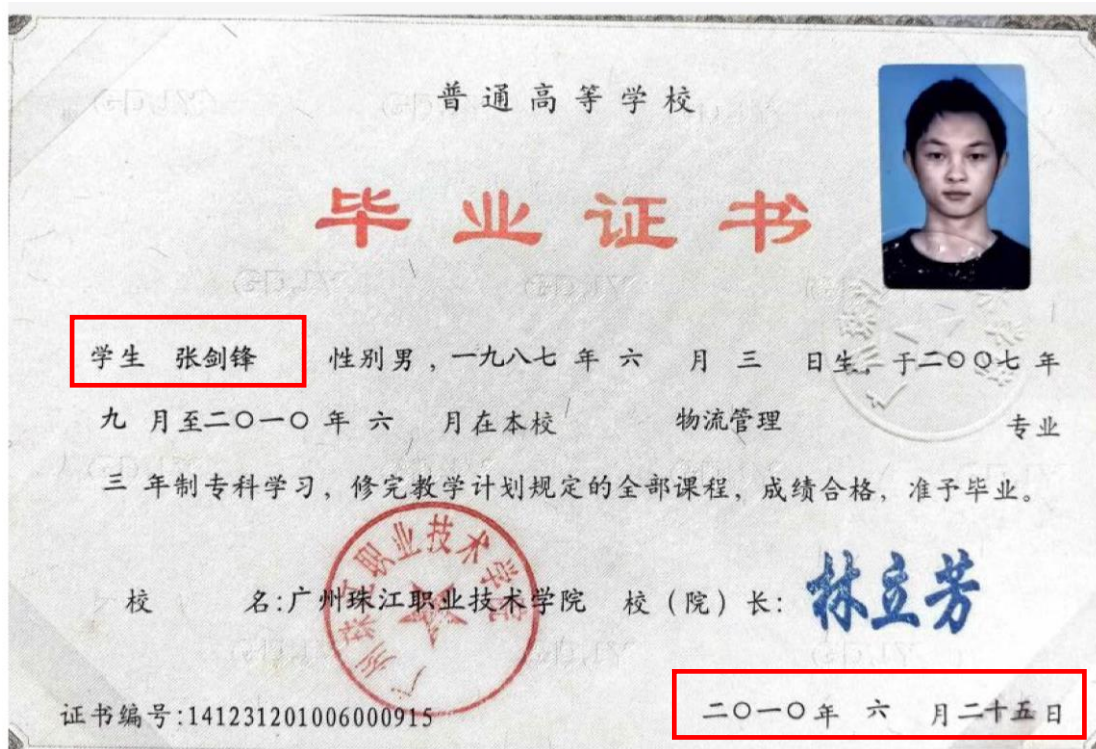 普通高等学校
毕业证书
学生 张剑锋 性别男，一九八七 年 六 月 三 日生，于二〇〇七 年
九 月至二〇一〇 年 六 月在本校 物流管理 专业
三 年制专科学习，修完教学计划规定的全部课程，成绩合格，准予毕业。
广州珠江职业技术学院
校 名:广州珠江职业技术学院 校（院）长: 林立芳
证书编号:141231201006000915 二〇一〇年 六 月二十五日